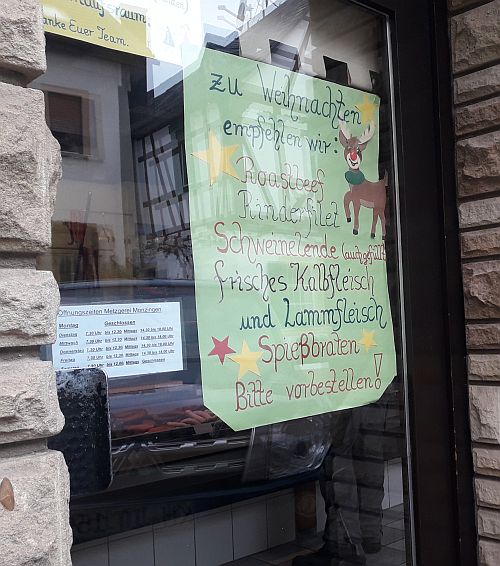 Euer Team.
zu Weihnachten
empfehlen wir:
Roastbeef
Rinderfilet
Schweinelende (auch gefüllt)
frisches Kalbfleisch
und Lammfleisch
Spießbraten
Bitte vorbestellen!
Öffnungszeiten Metzgerei Monzingen
Montag Geschlossen
Dienstag 7.30 Uhr bis 12.30 Mittags 14.30 bis 18.00 Uhr
Mittwoch 7.30 Uhr bis 12.30 Mittags 14.30 bis 18.00 Uhr
Donnerstag 7.30 Uhr bis 12.30 Mittags 14.30 bis 18.00 Uhr
Freitag 7.30 Uhr bis 12.30 Mittags 14.30 bis 18.00 Uhr
Samstag 7.30 Uhr bis 12.00 Mittags Geschlossen